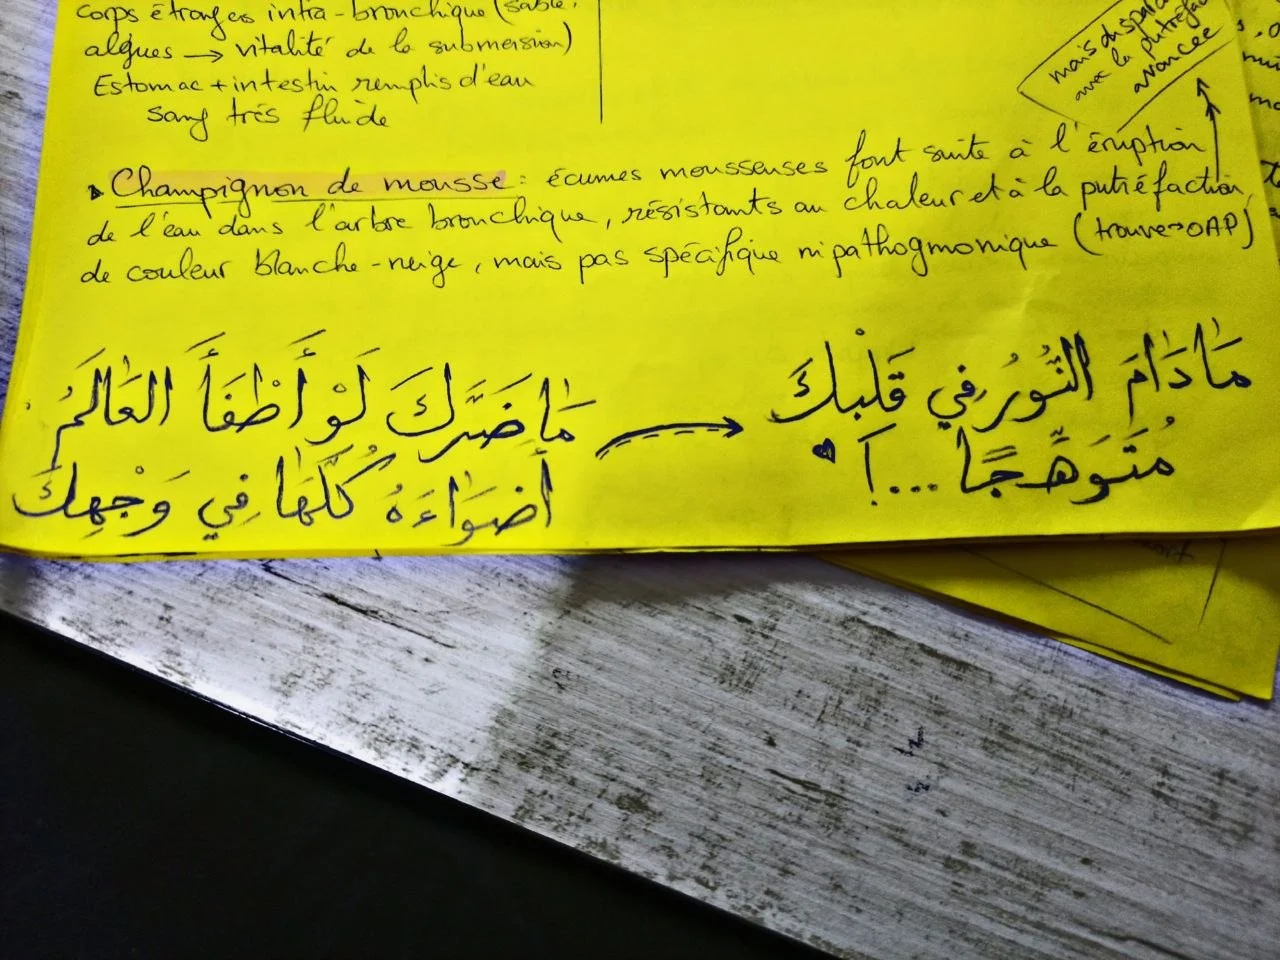 corps étrangers intra-bronchique (sable,
algues → vitalité de la submersion)
Estomac + intestin remplis d'eau
sang trés fluide
mais disparait
avec la putréfaction
avancée
▸ Champignon de mousse : écumes mousseuses font suite à l'éruption
de l'eau dans l'arbre bronchique, résistants au chaleur et à la putréfaction,
de couleur blanche-neige, mais pas spécifique ni pathogmonique (trouve→OAP)
مَا ضَرَّكَ لَوْ أَطْفَأَ العَالَمُ
أَضوَاءَهُ كُلَّهَا فِي وَجْهِكَ
مَا دَامَ النُّورُ فِي قَلْبِكَ
مُتَوَهِّجًا ...!